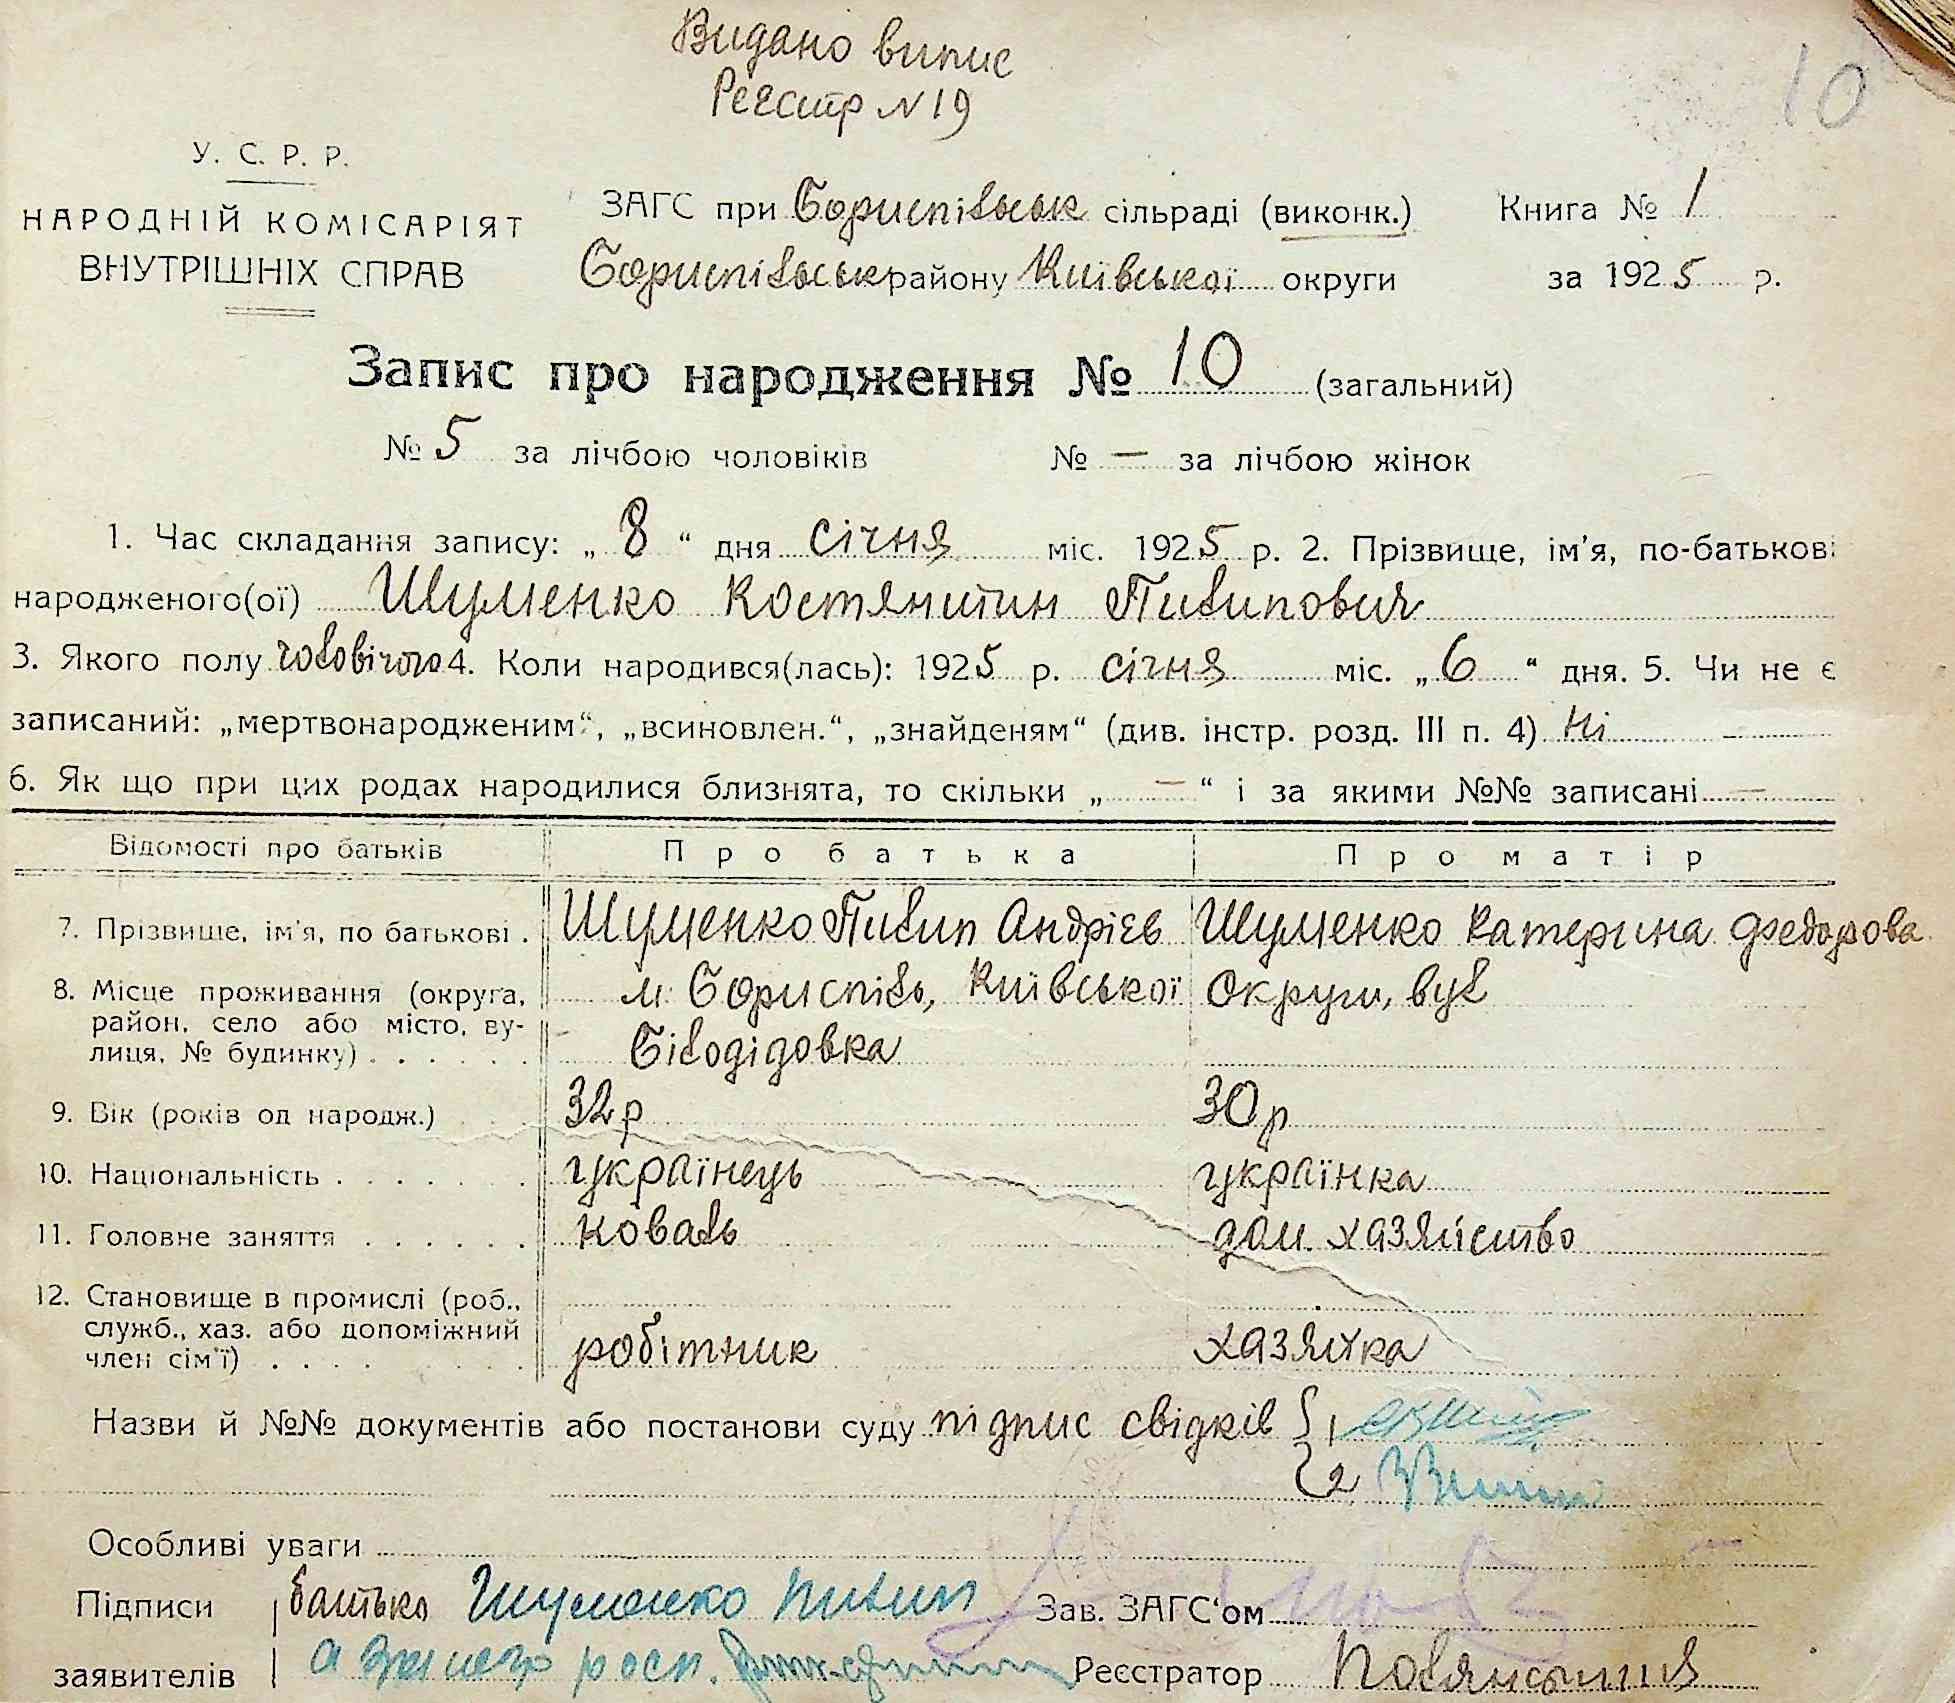 Видано випис
Реєстр N 19
10
У. С. Р. Р.
НАРОДНІЙ КОМІСАРІЯТ
ВНУТРІШНІХ СПРАВ
ЗАГС при Бориспільськ сільраді (виконк.) Книга № 1
Бориспільськ району Київської округи за 1925 р.
Запис про народження № 10 (загальний)
№ 5 за лічбою чоловіків № — за лічбою жінок
1. Час складання запису: „ 8 “ дня січня міс. 1925 р. 2. Прізвище, ім'я, по-батькові
народженого(ої) Шуменко Костянтин Пилипович
3. Якого полу чоловічого 4. Коли народився(лась): 1925 р. січня міс. „ 6 “ дня. 5. Чи не є
записаний: „мертвонародженим“, „всиновлен.“, „знайденям“ (див. інстр. розд. III п. 4) Ні —
6. Як що при цих родах народилися близнята, то скільки „ — “ і за якими №№ записані —
Відомості про батьків Про батька Про матір
7. Прізвище, ім'я, по батькові . Шуменко Пилип Андрієв Шуменко Катерина Федорова
8. Місце проживання (округа, район, село або місто, вулиця, № будинку) . . . . . . м. Бориспіль, Київської Округи, вул
Білодідовка
9. Вік (років од народж.) 32 р 30 р
10. Національність . . . . . . . українець українка
11. Головне заняття . . . . . . коваль дом. хазяйство
12. Становище в промислі (роб., служб., хаз. або допоміжний член сім'ї) . . . . робітник хазяйка
Назви й №№ документів або постанови суду підпис свідків { 1
2
Особливі уваги
Підписи батько Шуменко Пилип Зав. ЗАГС‘ом
заявителів а за него росп. Реєстратор